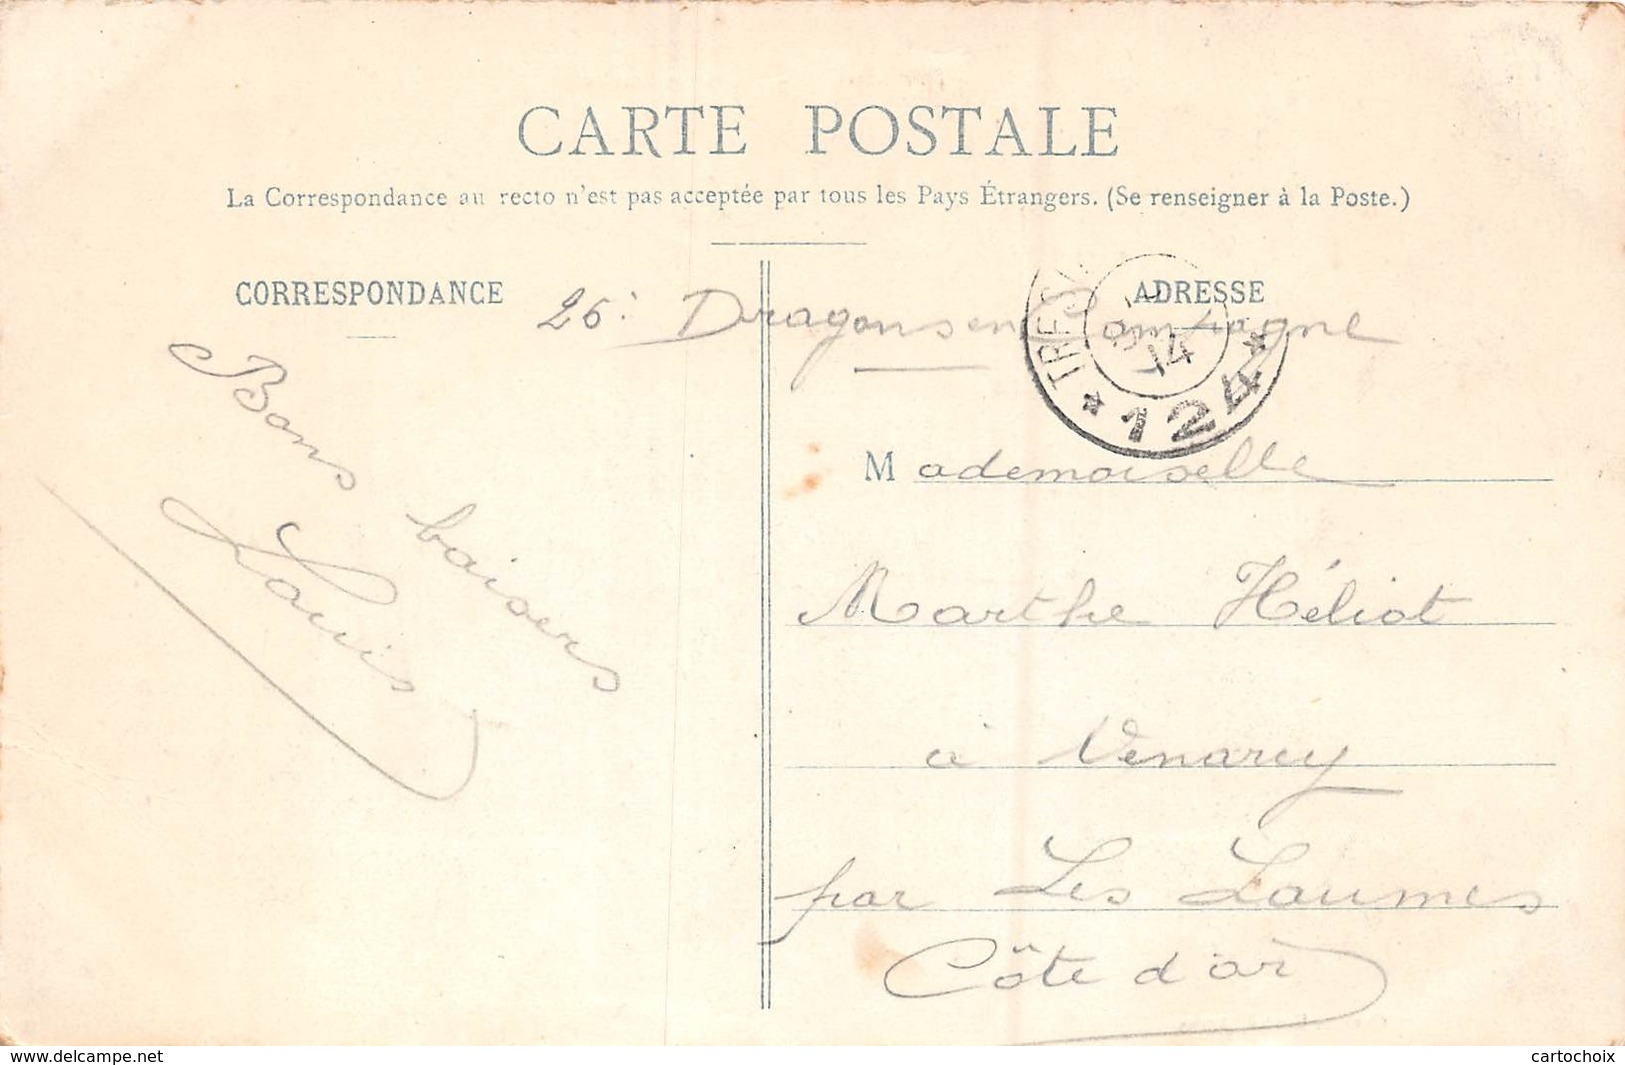 CARTE POSTALE
La Correspondance au recto n'est pas acceptée par tous les Pays Étrangers. (Se renseigner à la Poste.)
CORRESPONDANCE
ADRESSE
26: Dragons en Campagne
Bons baisers
Louis
Mademoiselle
Marthe Héliot
à Venarey
par Les Laumes
Côte d'or
* 124 *
14
www.delcampe.net
cartochoix